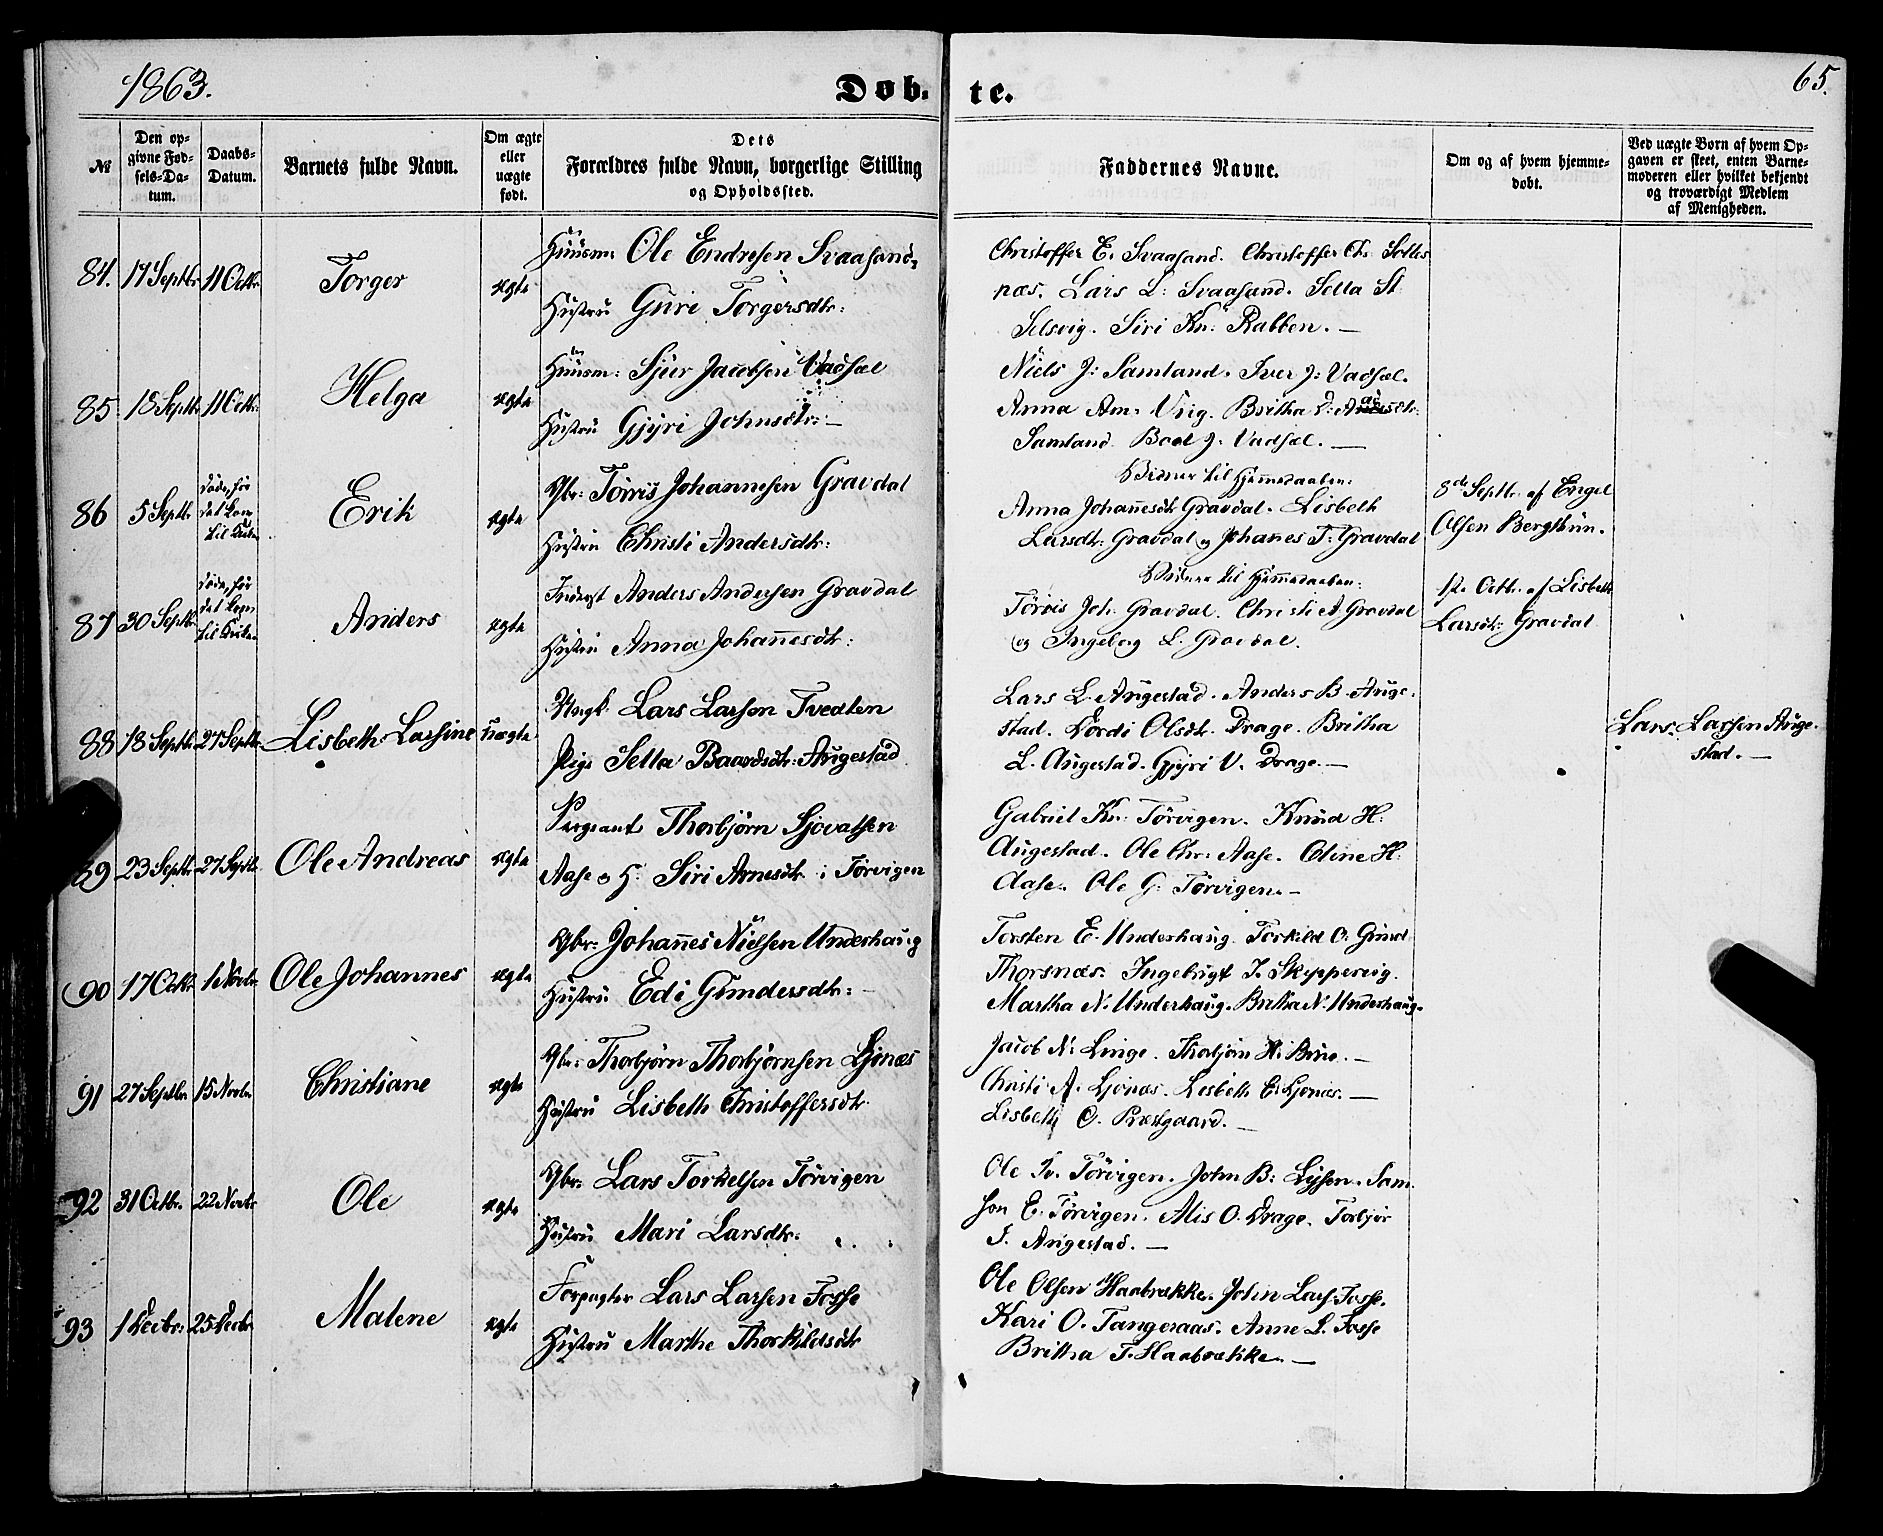 1863.
Døb-
te.
65.
№
Den op-
givne Fød-
sels-Da-
tum.
Daabs-
Datum.
Barnets fulde Navn.
Om ægte
eller
uægte
født.
Dets
Forældres fulde Navn, borgerlige Stilling
og Opholdssted.
Faddernes Navne.
Om og af hvem hjemme-
døbt.
Ved uægte Børn af hvem Op-
gaven er skeet, enten Barne-
moderen eller hvilket bekjendt
og troværdigt Medlem
af Menigheden.
84. 17 Septbr 11 Octbr. Torger ægte
Huusm: Ole Endresen Svaasand,
Hustru Guri Torgersdtr:
Christoffer E. Svaasand. Christoffer Chr. Soltes
næs. Lars L: Svaasand. Sella St.
Selsvig. Siri Kn: Rabben. —
85. 18 Septbr 11 Octbr: Helga ægte
Huusm: Sjur Jacobsen Vadsæl
Hustru Gjyri Johnsdtr: —
Niels J: Samland. Iver J: Vadsæl.
Anna Am: Vüg. Britha D:
Samland. Boel J: Vadsæl. —
86 5 Septbr døde, før
det kom
til Kirken Erik ægte
Gbr: Torris Johannesen Gravdal
Hustru Christi Andersdtr:
Vidner til Hjemmedaaben:
Anna Johannesdtr Gravdal. Lisbeth
Larsdtr: Gravdal og Johanes T: Gravdal
8de Septbr. af Engel
Olsen Bergthun.
87 30 Septbr døde, før
det kom
til Kirken Anders ægte
Inderst Anders Andersen Gravdal
Hustru Anna Johannesdtr:
Vidner til Hjemmedaaben:
Torris Joh. Gravdal. Christi A. Gravdal
og Ingeborg L. Gravdal.
1ste Octbr. af Lisbeth
Larsdtr: Gravdal
88 18 Septbr. 27 Septbr. Lisbeth Larsine uægte
Ungk. Lars Larsen Tvedten
Pige Sella Baardsdtr: Augestad
Lars L. Augestad. Anders B. Auge-
stad. Dordi Olsdtr. Drage. Britha
L. Augestad. Gjyri V. Drage. —
Lars Larsen Auge-
stad. —
89 23 Septbr. 27 Septbr. Ole Andreas ægte
Sergeant Thorbjørn Sjovatsen
Aase og H: Siri Arnesdtr i Tørvigen
Gabriel Kn: Tørvigen. Knud H:
Augestad. Ole Chr: Aase. Oline H:
Aase. Ole G: Tørvigen. —
90 17 Octbr. 1 Novbr. Ole Johannes ægte
Gbr: Johannes Nielsen Underhaug
Hustru Edi Gundersdtr: —
Torsten E. Underhaug. Torkild O. Grund
Thorsnæs. Ingebrigt J. Skyppervig.
Martha N. Underhaug. Britha N. Underhaug.
91 27 Septbr 15 Novbr. Christiane ægte
Gbr: Thorbjørn Thorbjørnsen Ljonæs
Hustru Lisbeth Christoffersdtr.
Jacob N: Linge. Thorbjørn H: Brue. —
Christi A. Ljonæs. Lisbeth E. Ljonæs. —
Lisbeth O. Prestgaard. —
92 31 Octbr. 22 Novbr Ole ægte
Gbr: Lars Torkelsen Tørvigen
Hustru Mari Larsdtr:
Ole Tv. Tørvigen. John B: Lysen. Sam-
son E. Tørvigen. Alis O. Drage. Torbjør
I. Augestad. —
93 1 Decbr: 25 Decbr Malene ægte
Forpagter Lars Larsen Fosse
Hustru Marthe Thorkildsdtr
Ole Olsen Haabrække. John Lars. Fosse.
Kari O. Tangeraas. Anne L. Fosse
Britha T. Haabrække. —